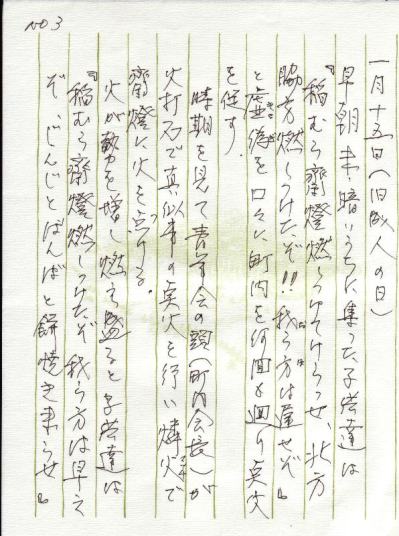 NO 3
一月十五日(旧成人の日)
早朝未暗いうちに集った子供達は
『稲むら齋燈燃しつけてけらっせ、北方
脇方燃しつけたぞ!!我ら方は遅せぞ』
と虚勢を口々に町内を何回も廻り点火
を促す.
時期を見て青年会の頭(町内会長)が
火打石で真似事の点火を行い燐火で
齋燈に火をつける.
火が勢を増し燃え盛ると子供達は
『稲むら齋燈燃しつけたぞ我ら方は早え
ぞ、じんじとばんばと餅焼き来らせ』